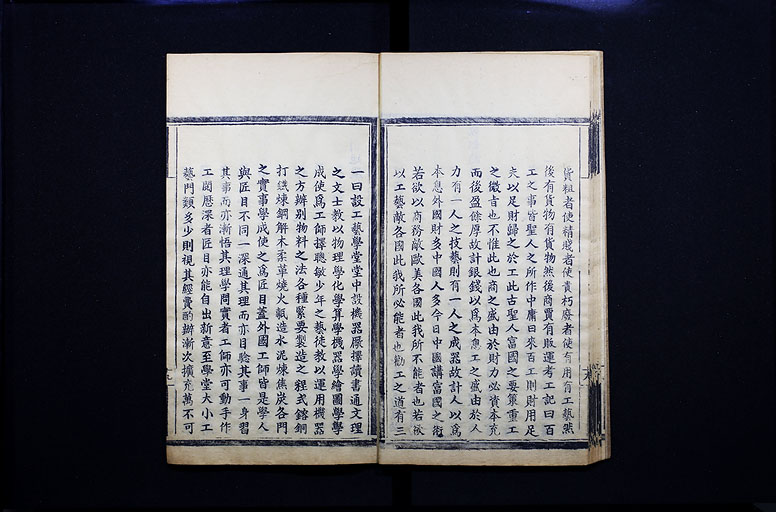 貨粗者使精賤者使貴朽廢者使有用有工藝然
後有貨物有貨物然後商賈有販運考工記曰百
工之事皆聖人之所作中庸曰來百工則財用足
夫以足財歸之於工此古聖人富國之要策重工
之徵言也不惟此也商之盛由於財力必資本充
而後盈餘厚故計銀錢以爲本息工之盛由於人
力有一人之技藝則有一人之成器故計人以爲
本息外國財多中國人多今日中國講富國之術
若欲以商務敵歐美各國此我所不能者也若欲
以工藝敵各國此我所必能者也勸工之道有三
一曰設工藝學堂堂中設機器厰擇讀書通文理
之文士教以物理學化學算學機器學繪圖學學
成使爲工師擇聰敏少年之藝徒教以運用機器
之方辨别物料之法各種緊要製造之程式鎔銅
打鐵煉鋼解木柔革燒火甎造水泥煉焦炭各門
之實事學成使之爲匠目蓋外國工師皆是學人
與匠目不同一深通其理而亦目驗其事一身習
其事而亦漸悟其理學問實者工師亦可動手作
工閱歷深者匠目亦能自出新意至學堂大小工
藝門類多少則視其經費酌辦漸次擴充萬不可